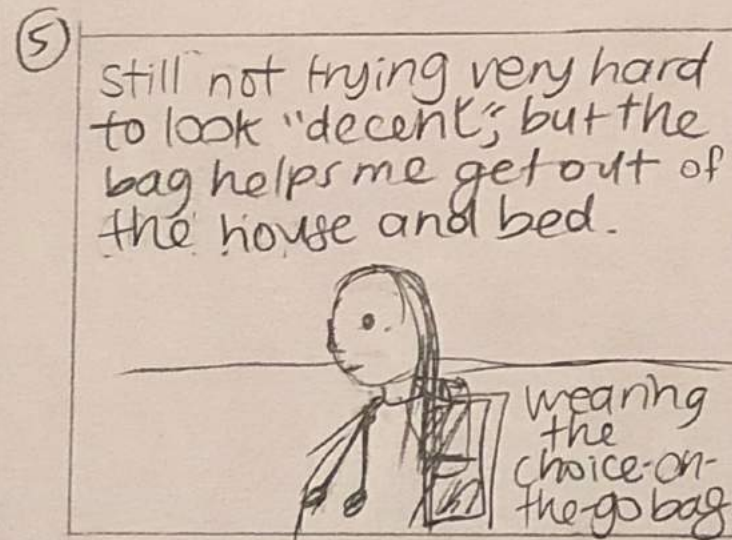 5
still not trying very hard
to look "decent", but the
bag helps me get out of
the house and bed.
wearing
the
choice-on-
the-go bag